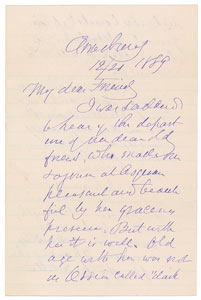 Amesbury
12/21 1889
My dear Friend
I was saddened
to hear of the depart
ure of our dear old
friend, who made our
sojourn at Asquam
pleasant and beauti
ful by her gracious
presence. But with
her it is well. Old
age with her was not
as Ossian called "dark